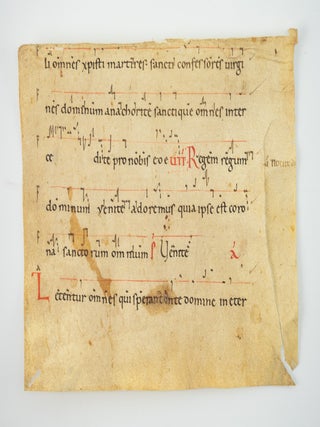 li omnes xpisti martires sancti confessores uirgi
nes dominum anachorite sanctique omnes inter
ce dite pro nobis e o e Regem regum
dominum Uenite adoremus quia ipse est coro
na sanctorum omnium Uenite
Letentur omnes qui sperant in te domine in eter